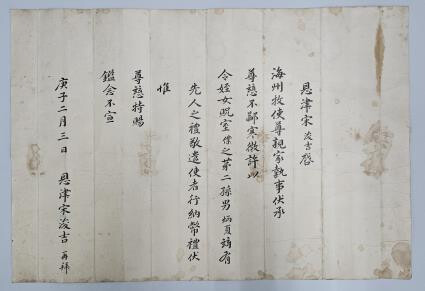 恩津宋浚吉啓
海州牧使尊親家執事伏承
尊慈不鄙寒微許以
令姪女貺室僕之第二孫男炳夏玆有
先人之禮敬遣使者行納幣禮伏
惟
尊慈特賜
鑑念不宣
庚子二月三日 恩津宋浚吉 再拜